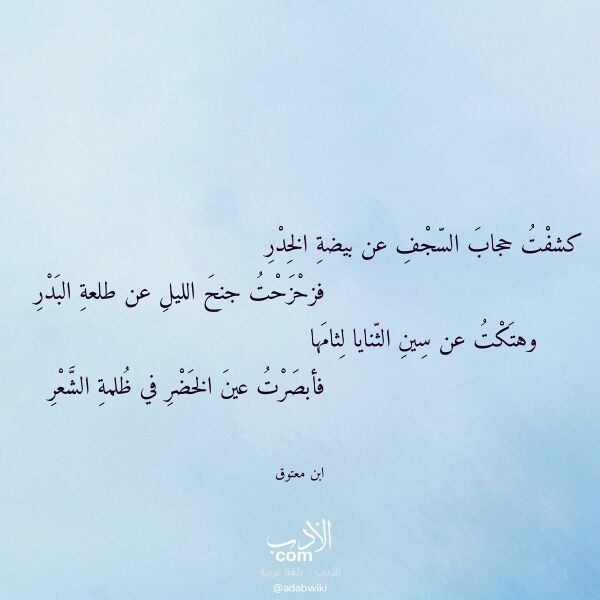 كشفْتُ حجابَ السّجْفِ عن بيضةِ الخِدْرِ
فزحْزَحْتُ جنحَ الليلِ عن طلعةِ البَدْرِ
وهتَكْتُ عن سِينِ الثّنايا لِثامَها
فأبصَرْتُ عينَ الخَضْرِ في ظُلمةِ الشَّعْرِ
ابن معتوق
الأدب
com
الأدب .. بلغة عربية
@adabwiki